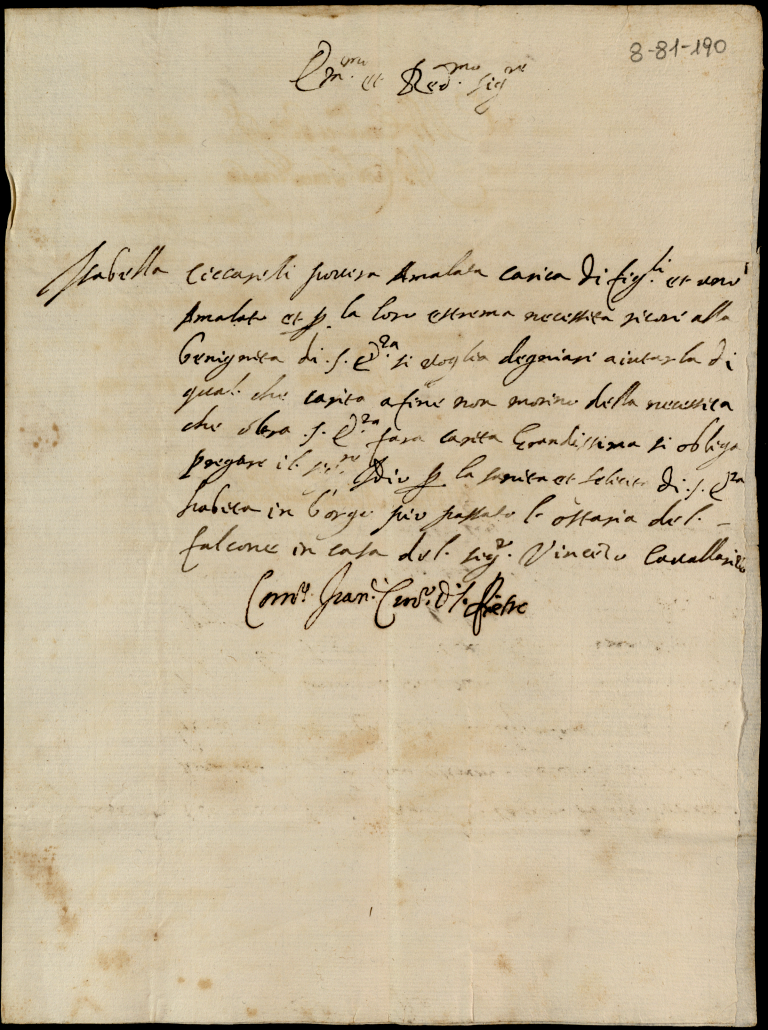 8-81-190
Em.mo et Red.mo Sig.re
Isabella Ceccarelli povera Amalata carica di figli et uno
Amalato et p la loro estrema necessita ricore alla
benignita di S. E.za si voglia degniare aiutarla di
qual che carita a fine non morino della necessita
che oltra S. E.za fara carita Grandissima si obliga
pregare il sig.re Iddio p la sanita et felicita di S. E.za
habita in borgo pio passato l ostaria del
falcone in casa del sig.r Vincenzo Cavallarizo